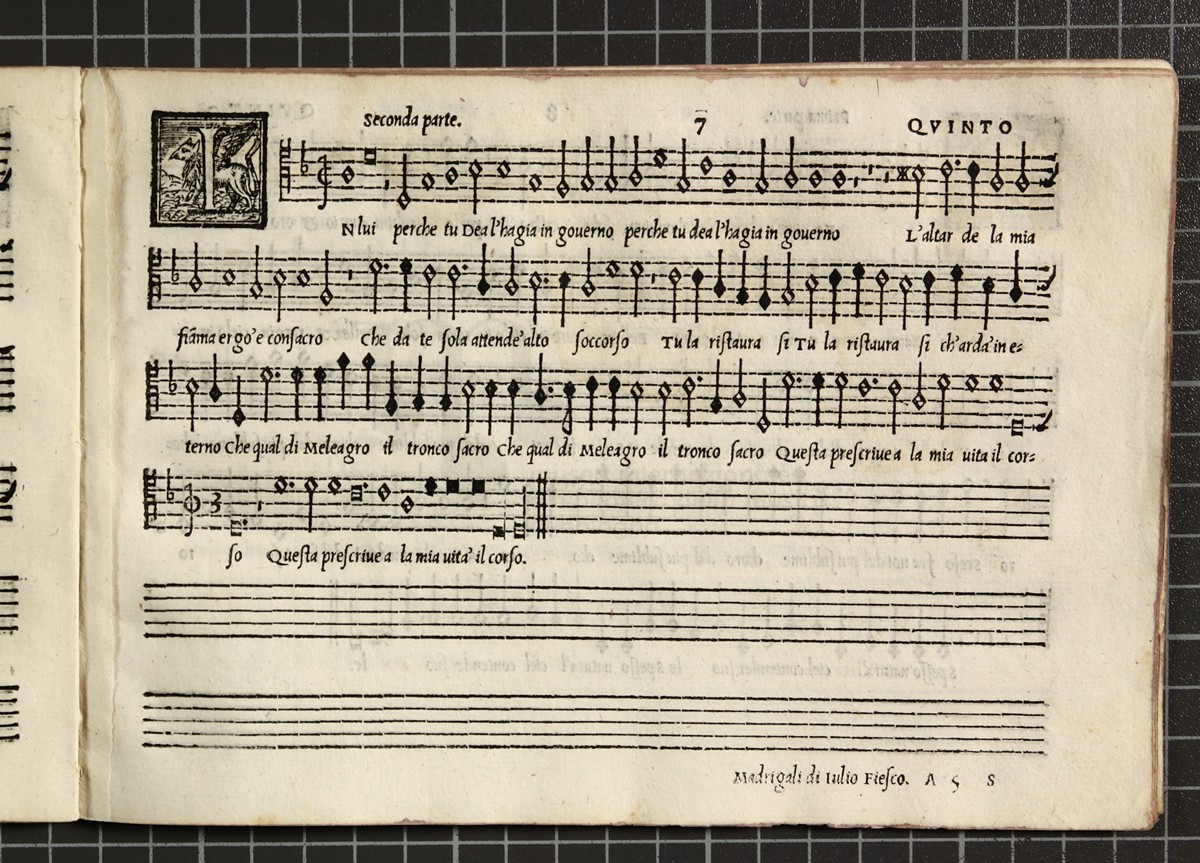 Seconda parte. 7 QVINTO
IN lui perche tu Dea l'hagia in gouerno perche tu dea l'hagia in gouerno L'altar de la mia
fiãma ergo'e consacro Che da te sola attende'alto soccorso Tu la ristaura si Tu la ristaura si ch'arda'in e=
terno Che qual di Meleagro il tronco sacro Che qual di Meleagro il tronco sacro Questa prescriue a la mia uita il cor=
3
so Questa prescriue a la mia uita' il corso.
Madrigali di Iulio Fiesco. A 5 S